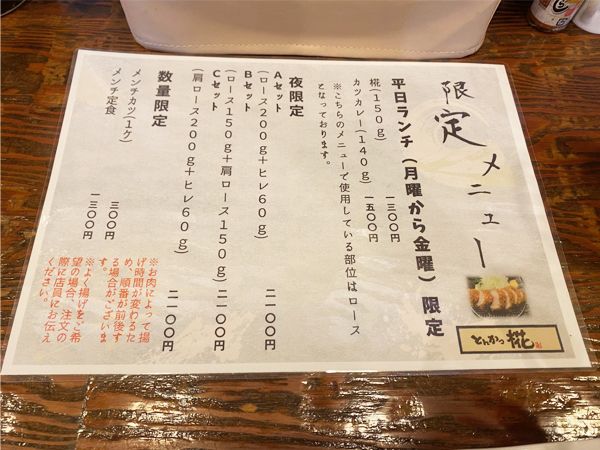 限定メニュー
平日ランチ（月曜から金曜）限定
糀(150g)
一三〇〇円
カツカレー(140g)
一五〇〇円
※こちらのメニューで使用している部位はロース
となっております。
夜限定
Aセット
(ロース200g+ヒレ60g)
二一〇〇円
Bセット
(ロース150g+肩ロース150g)
二一〇〇円
Cセット
(肩ロース200g+ヒレ60g)
二一〇〇円
数量限定
メンチカツ(1ケ)
三〇〇円
メンチ定食
一三〇〇円
※お肉によって揚
げ時間が変わるた
め、順番が前後す
る場合がございま
す。
※よく揚げをご希
望の場合、注文の
際に店員にお伝え
ください。
とんかつ 糀